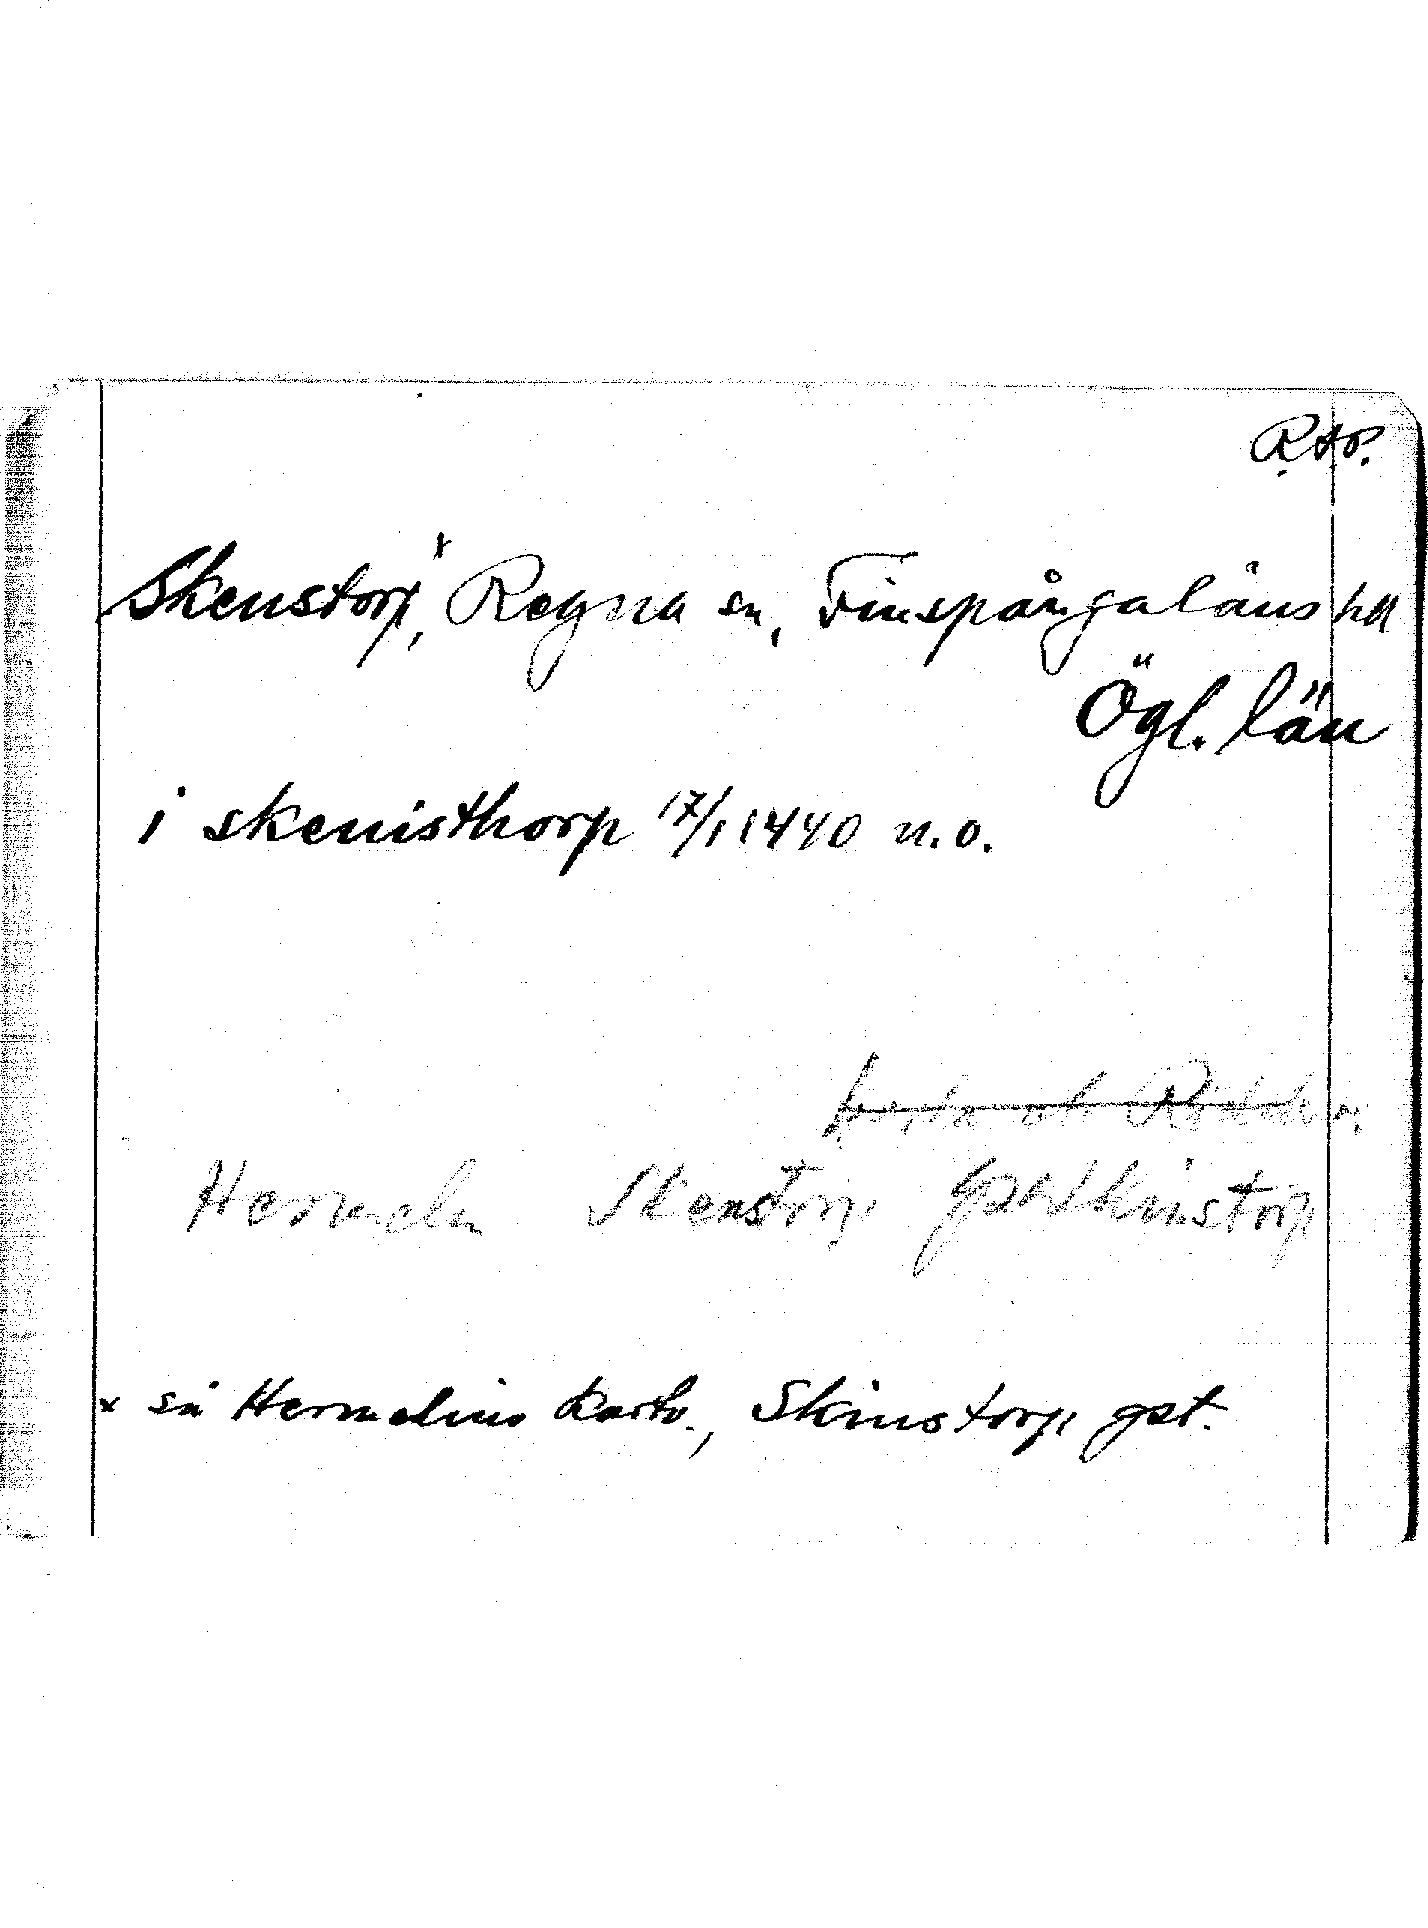 R.A.P.
Skenstorp,x Regna sn, Finspångaläns hd
Ögl. län
i skenisthorp 17/1 1440 n.o.
Hermelin Skenstorp Gst Skinstorp
x så Hermelins karta, Skinstorp gst.